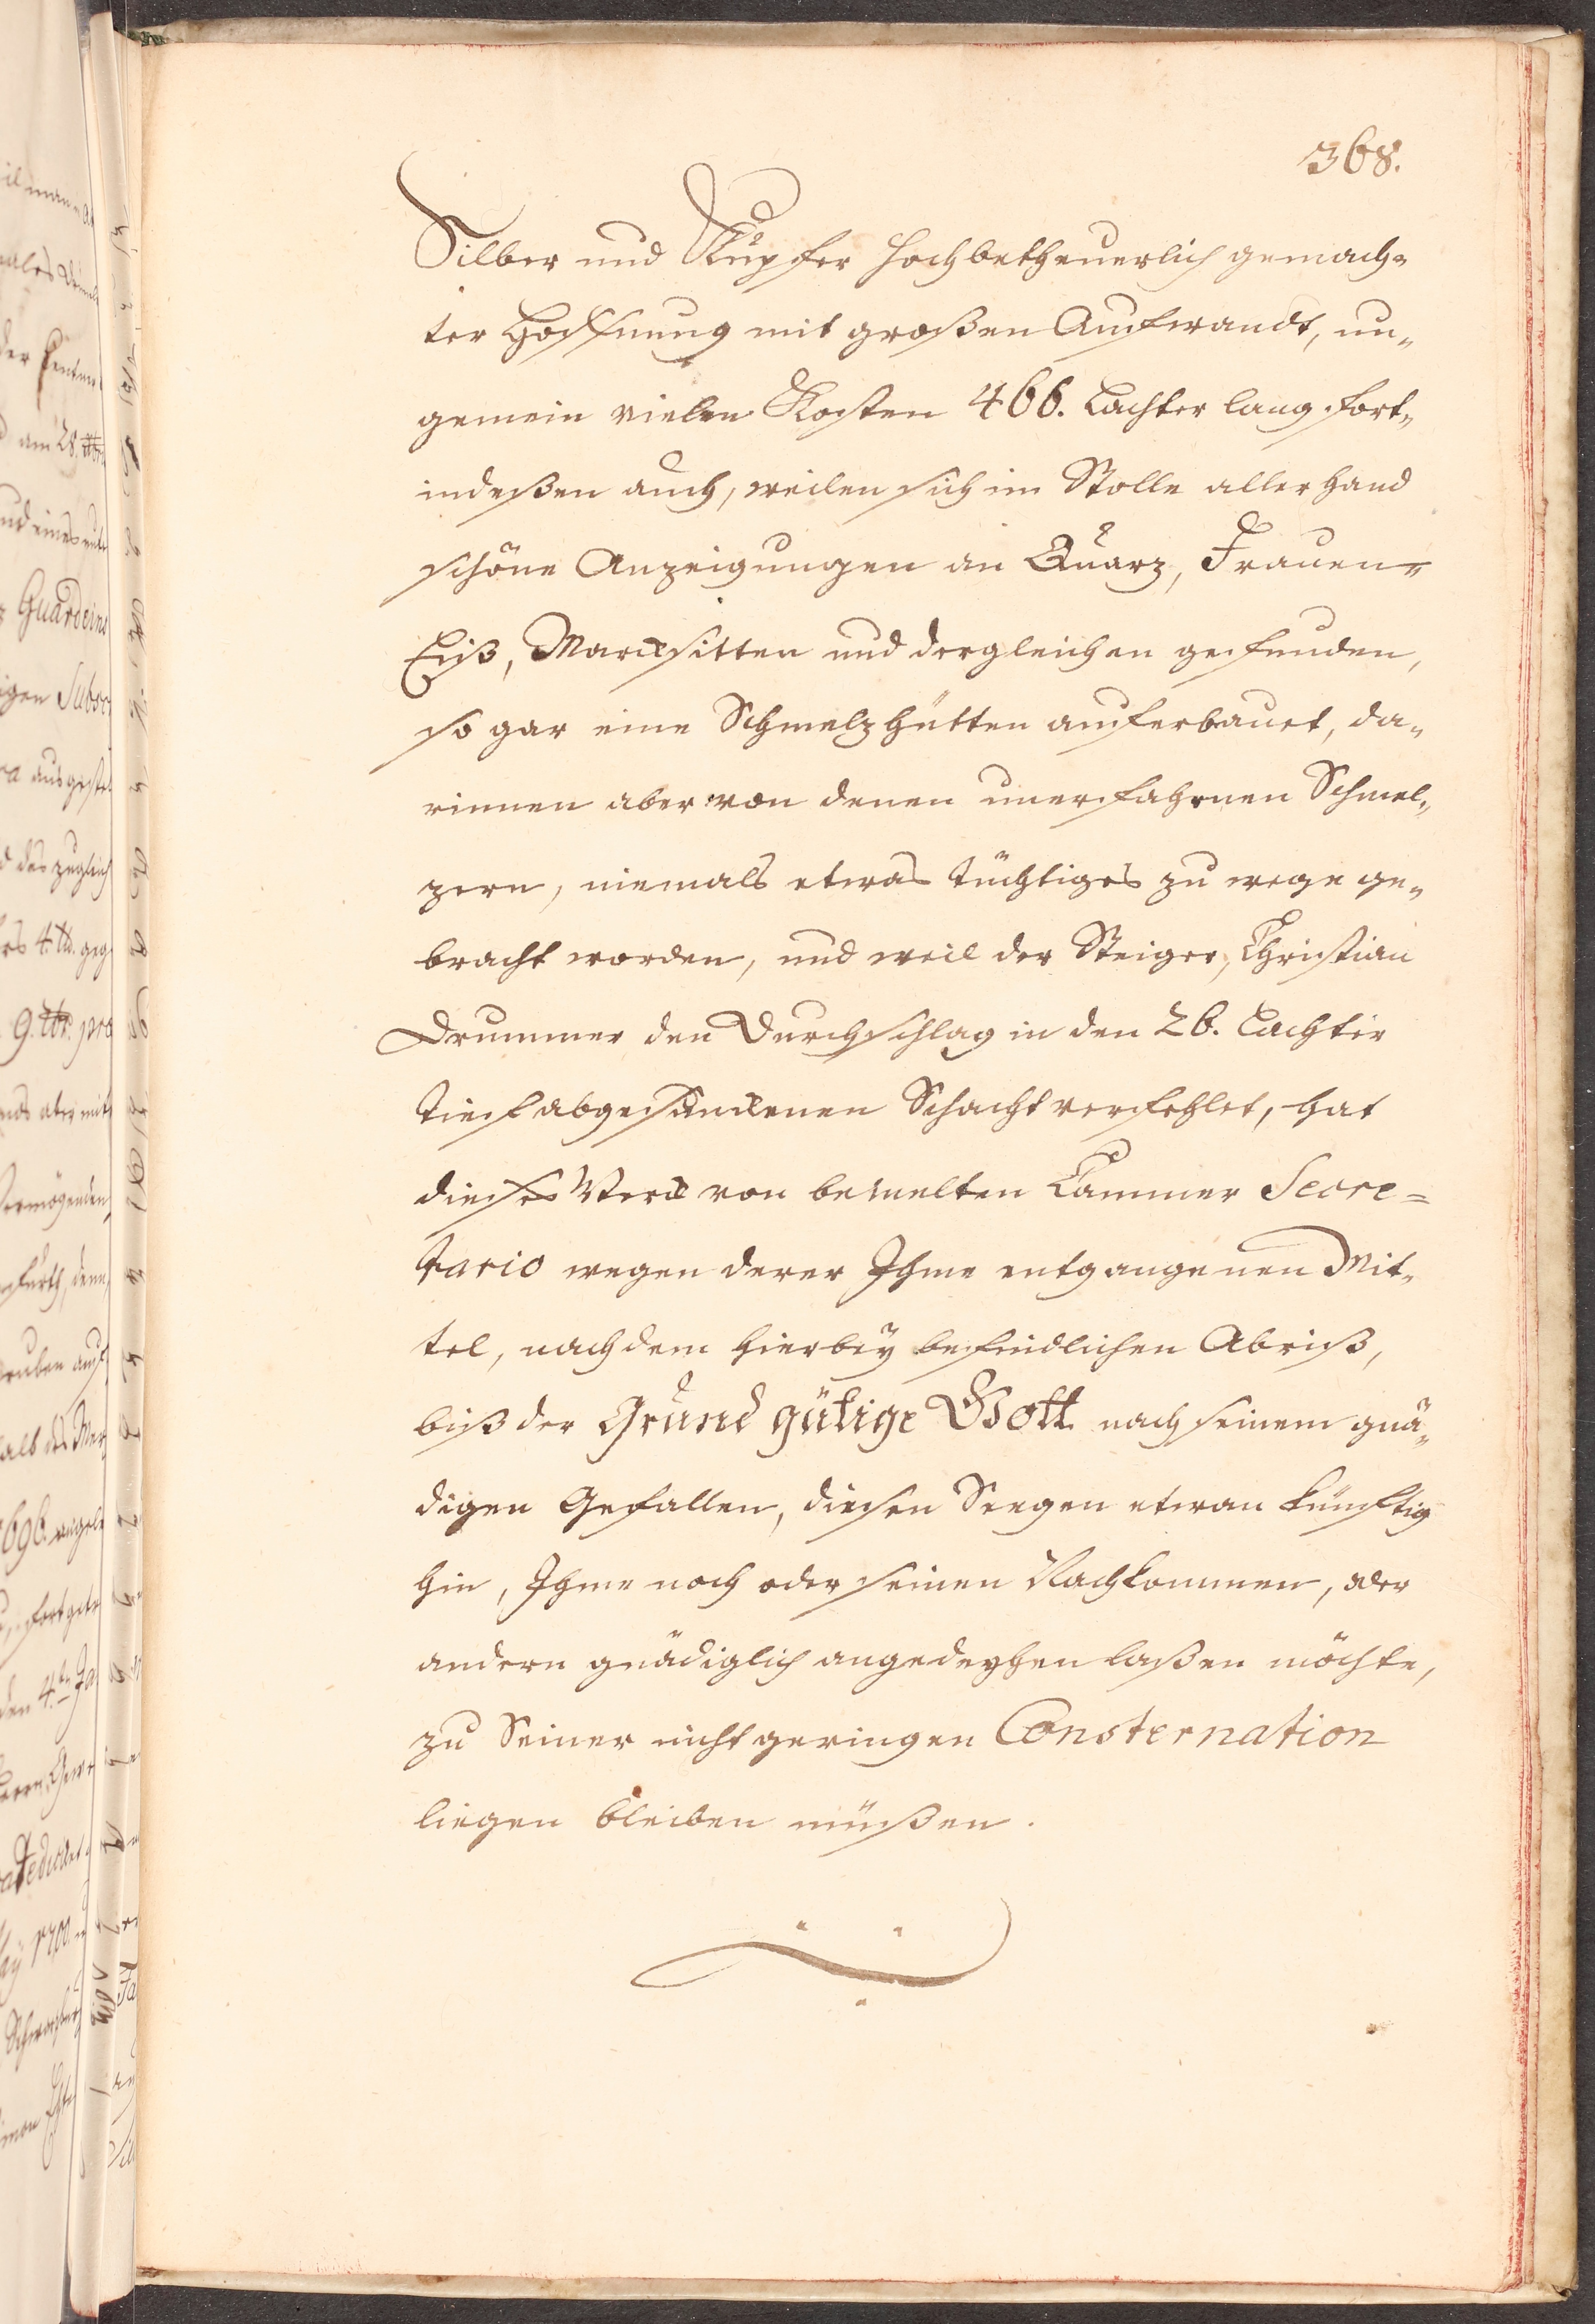 368.
Silber und Kupfer hochbetheuerlich gemach„
ter Hoffnung mit großen Auffwandt, un„
gemein vielen Kosten 466. Lachter lang fort„
indeßen auch, weilen sich im Stolle allerhand
schöne Anzeigungen an Quarz, Frauen„
Eiß, Marcksitten und dergleichen gefunden,
so gar eine Schmelzhütten aufferbauet, da„
rinnen aber von denen unerfahrnen Schmel„
zern, niemals etwas tüchtiges zu wege ge„
bracht worden, und weil der Steiger, Christian
Drummer den Durchschlag in den 26. Lachter
tieff abgesunckenen Schacht verfehlet, hat
dieses Werck von bemelten Cammer Secre=
tario wegen derer Ihme entgangenen Mit„
tel, nach dem hierbey befindlichen Abriß,
biß der Grund gütige Gott nach seinem gnä„
digen Gefallen, diesen Seegen etwan künfftig
hin, Ihme noch oder seinen Nachkommen, oder
andern gnädiglich angedeyhen laßen möchte,
zu Seiner nicht geringen Consternation
liegen bleiben müßen.